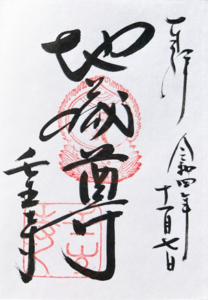 奉拝
令和四年
十一月七日
地蔵尊
壬生寺